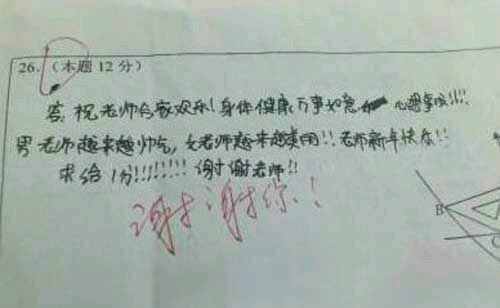 26.（本题 12 分）
答：祝老师合家欢乐！身体健康，万事如意 心想事成!!!!
男老师越来越帅气，女老师越来越美丽!!老师新年快乐!!
求给1分!!!!!!!! 谢谢老师!!
谢谢你!!
B
C